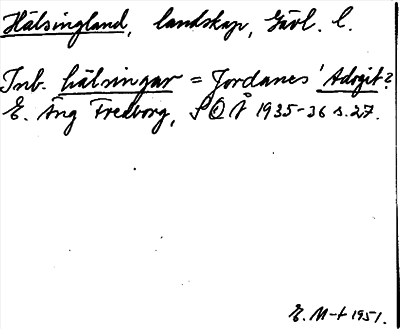 Hälsingland, landskap, Gävl. l.
Inb. hälsingar = Jordanes' Adogit?
E. Äng Fredborg, SOÅ 1935-36 s. 27.
E. M-t 1951.